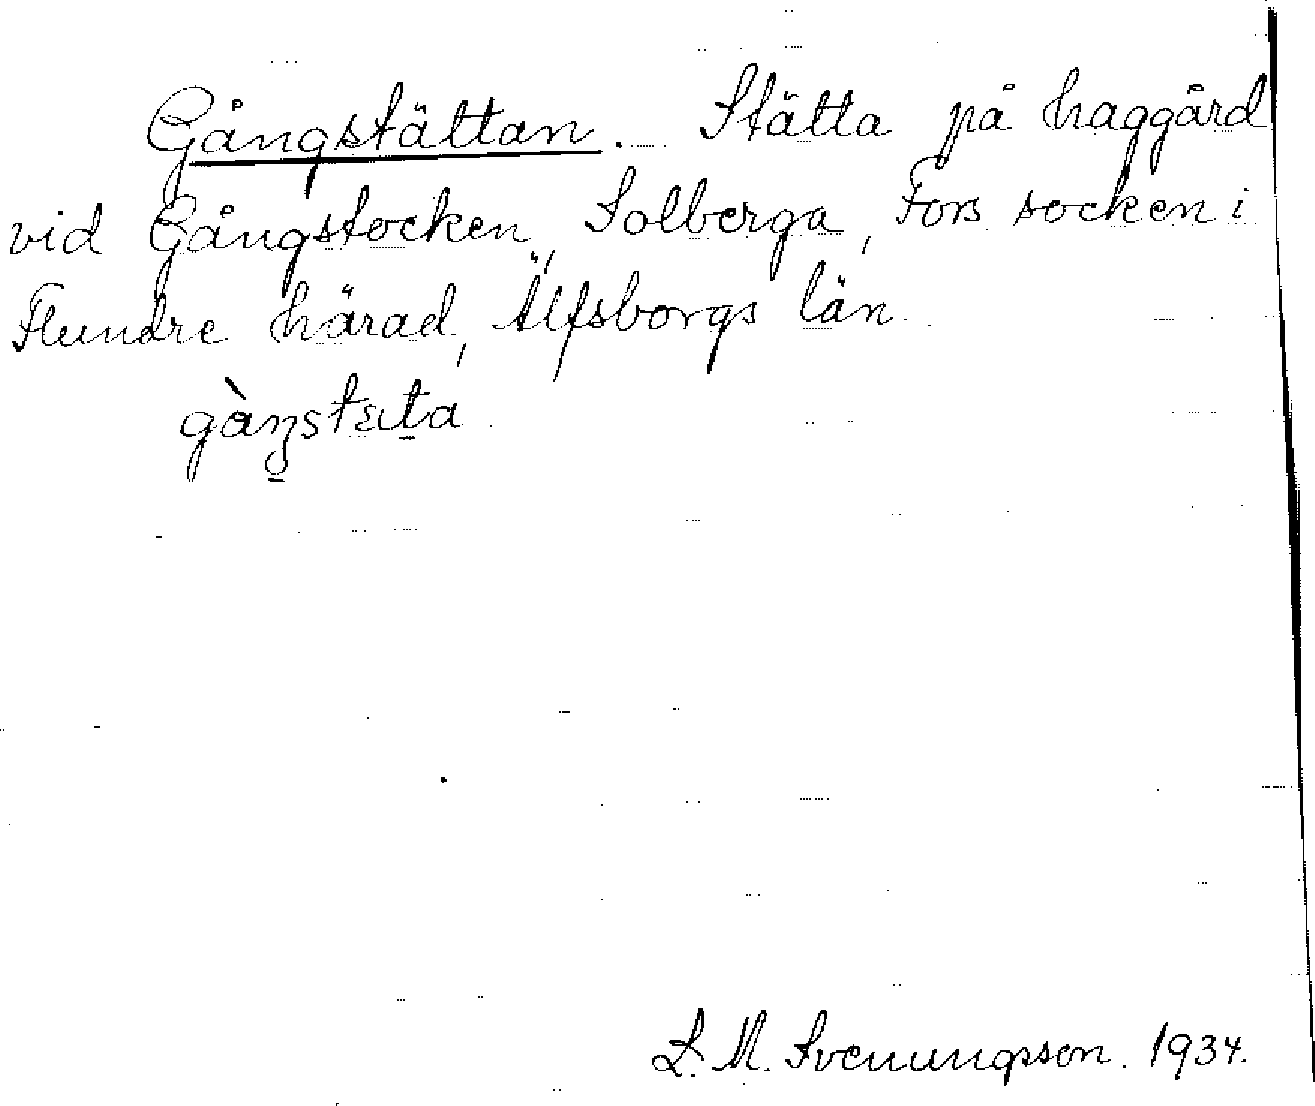 Gångstättan. Stätta på haggård
vid Gångstocken, Solberga, Fors socken i
Flundre härad, Älfsborgs län
gàŋstɛta
L. M. Svenungsson. 1934.